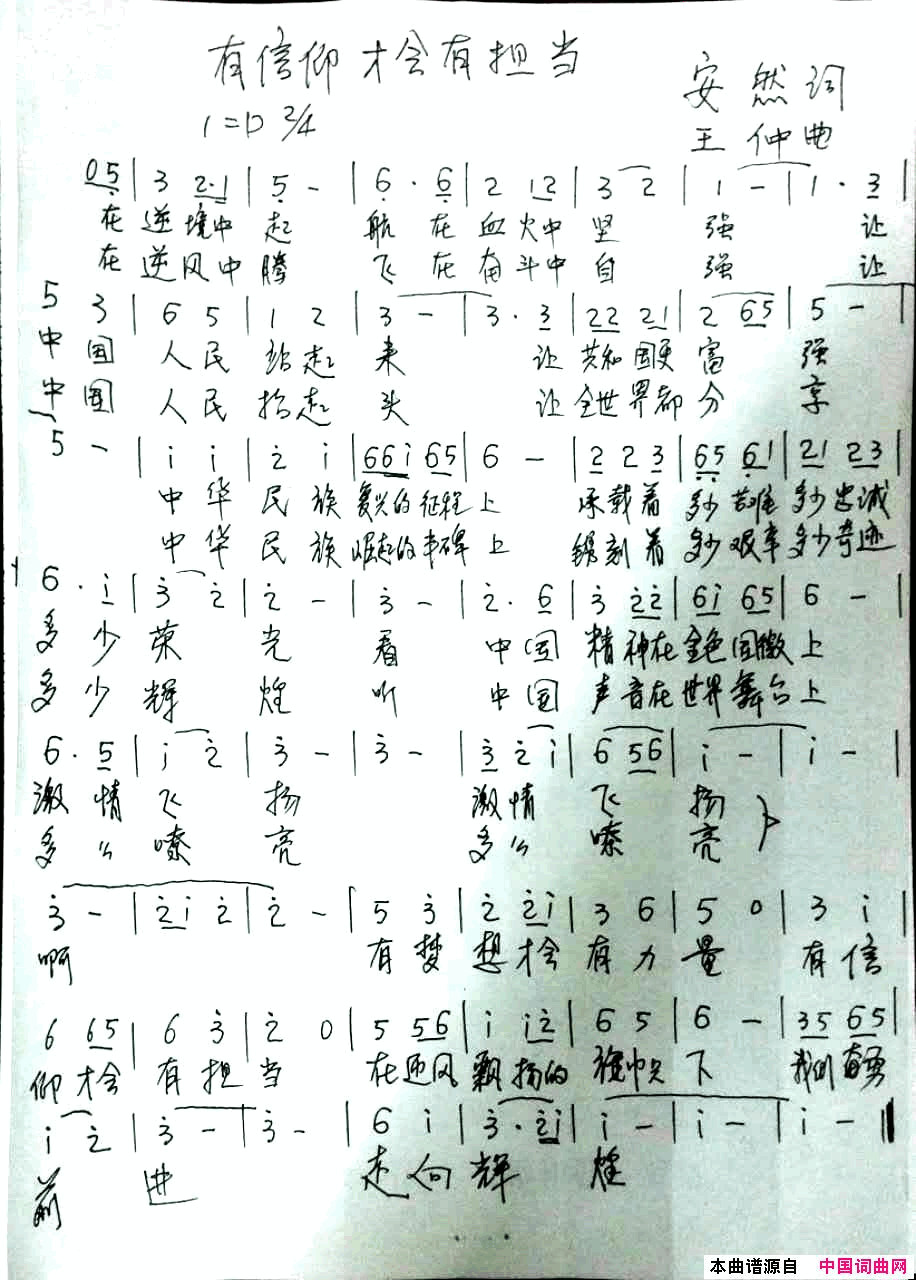 有信仰才会有担当
安然词
1=D 2/4
王仲曲
05 | 3 2·1 | 5 - | 6·6 | 2 12 | 3 2 | 1 - | 1·3 |
在逆境中起航在血火中坚强让
在逆风中腾飞在奋斗中自强让
5 3 | 6 5 | 1 2 | 3 - | 3·3 | 22 21 | 2 65 | 5 - |
中国人民站起来让共和国更富强
中国人民抬起头让全世界都分享
5 - | i i | 2 i | 66i 65 | 6 - | 2 2 3 | 65 61 | 21 23 |
中华民族复兴的征程上承载着多少苦难多少忠诚
中华民族崛起的丰碑上镌刻着多少艰辛多少奇迹
6·i | 3 2 | 2 - | 3 - | 2·6 | 3 22 | 6i 65 | 6 - |
多少荣光看中国精神在金色国徽上
多少辉煌听中国声音在世界舞台上
6·5 | i 2 | 3 - | 3 - | 3 2 i | 6 56 | i - | i - |
激情飞扬激情飞扬
多么嘹亮多么嘹亮
3 - | 2i 2 | 2 - | 5 3 | 2 2i | 3 6 | 5 0 | 3 i |
啊有梦想才会有力量有信
6 65 | 6 3 | 2 0 | 5 56 | i i2 | 6 5 | 6 - | 35 65 |
仰才会有担当在迎风飘扬的旗帜下我们奋勇
i 2 | 3 - | 3 - | 6 i | 3·2i | i - | i - | i - ‖
前进走向辉煌
本曲谱源自 中国词曲网